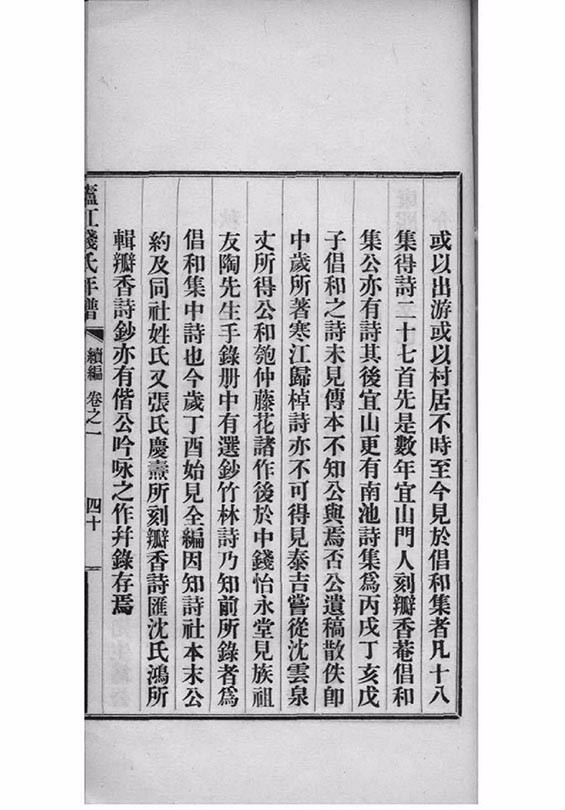 或以出游或以村居不時至今見於倡和集者凡十八
集得詩二十七首先是數年宜山門人刻瓣香菴倡和
集公亦有詩其後宜山更有南池詩集爲丙戌丁亥戊
子倡和之詩未見傳本不知公與焉否公遺稿散佚卽
中歲所著寒江歸棹詩亦不可得見泰吉嘗從沈雲泉
丈所得公和匏仲藤花諸作後於中錢怡永堂見族祖
友陶先生手錄册中有選鈔竹林詩乃知前所錄者爲
倡和集中詩也今歲丁酉始見全編因知詩社本末公
約及同社姓氏又張氏慶燾所刻瓣香詩匯沈氏鴻所
輯瓣香詩鈔亦有偕公吟咏之作幷錄存焉
廬江錢氏年譜 續編 卷之一 四十